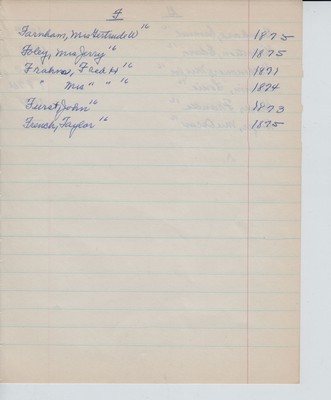 F
Farnham, Mrs Gertrude W " 16 1875
Foley, Mrs Jerry " 16 1875
Frahma, Fred H " 16 1871
" Mrs " " 16 1874
Furst, John " 16 1873
French, Taylor " 16 1875